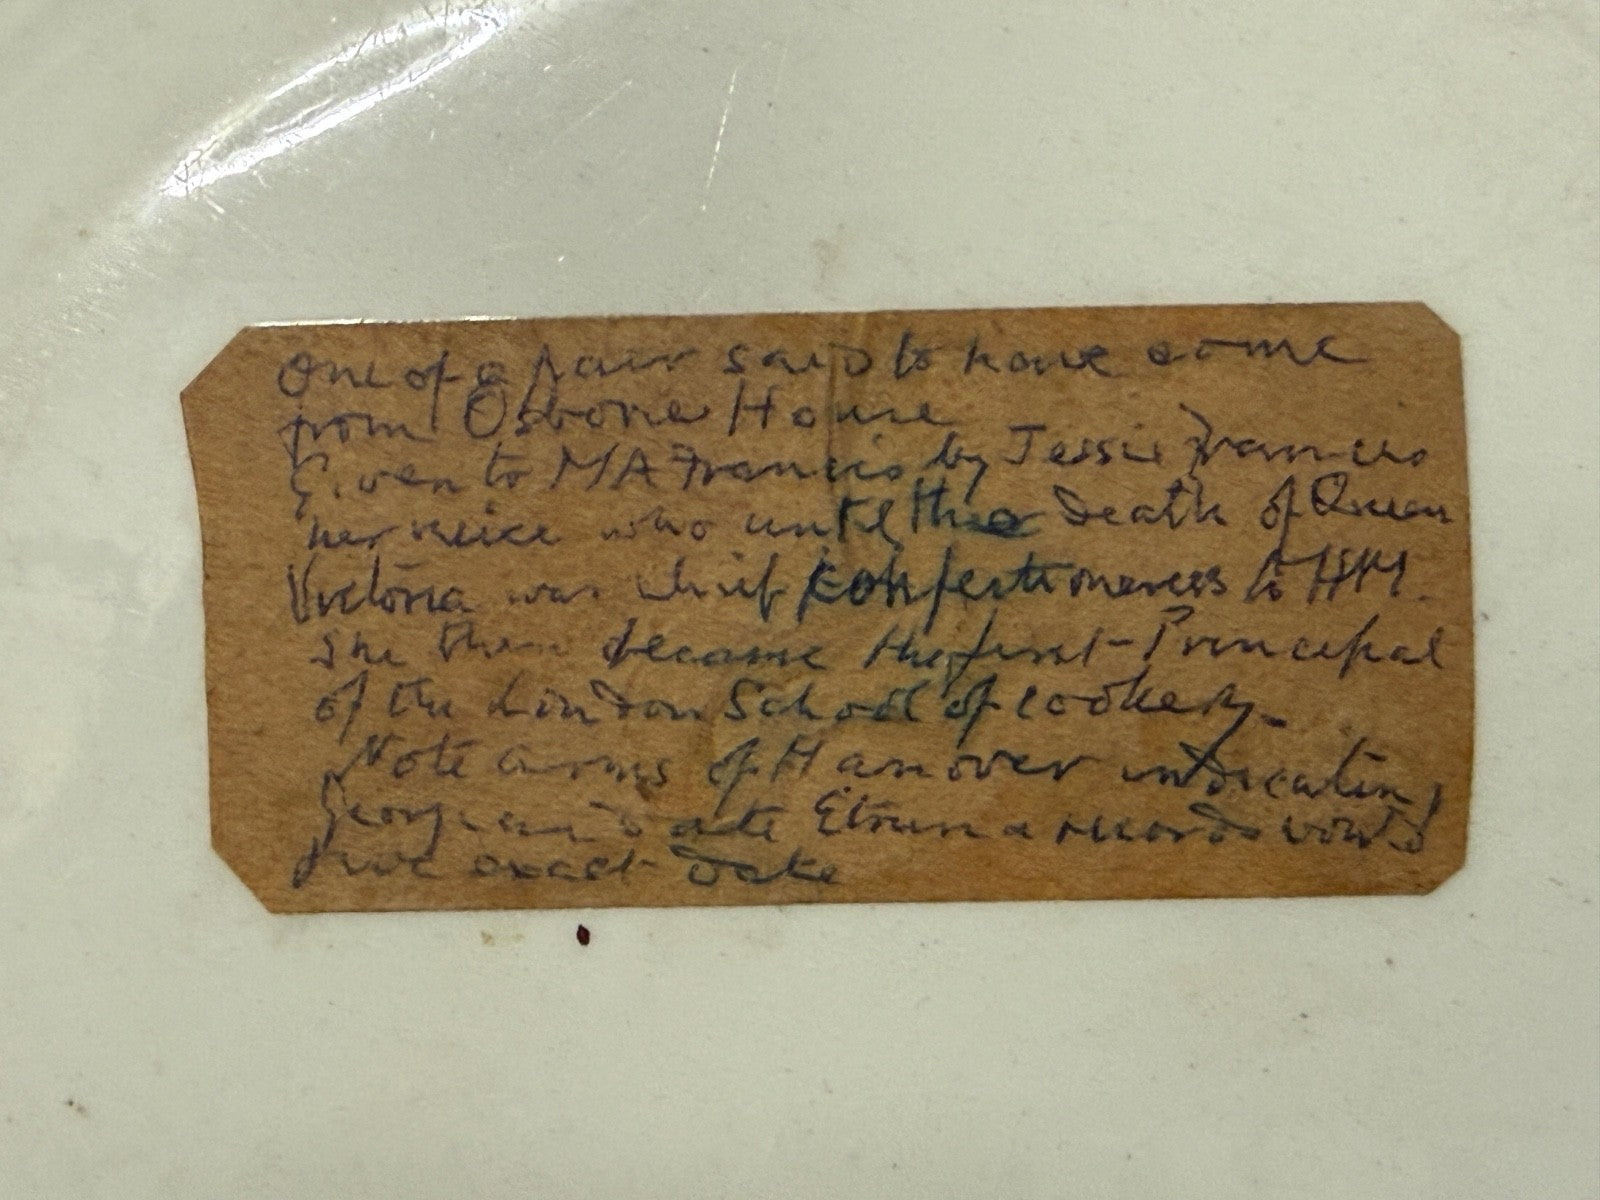 One of a pair said to have come
from Osborne House
Given to MA Francis by Jessie Francis
her neice who until the death of Queen
Victoria was chief Konfectioneress to HM.
She then became the first Principal
of the London School of cookery_
Note arms of Hanover indicating
Georgian date Etruria records would
give exact date